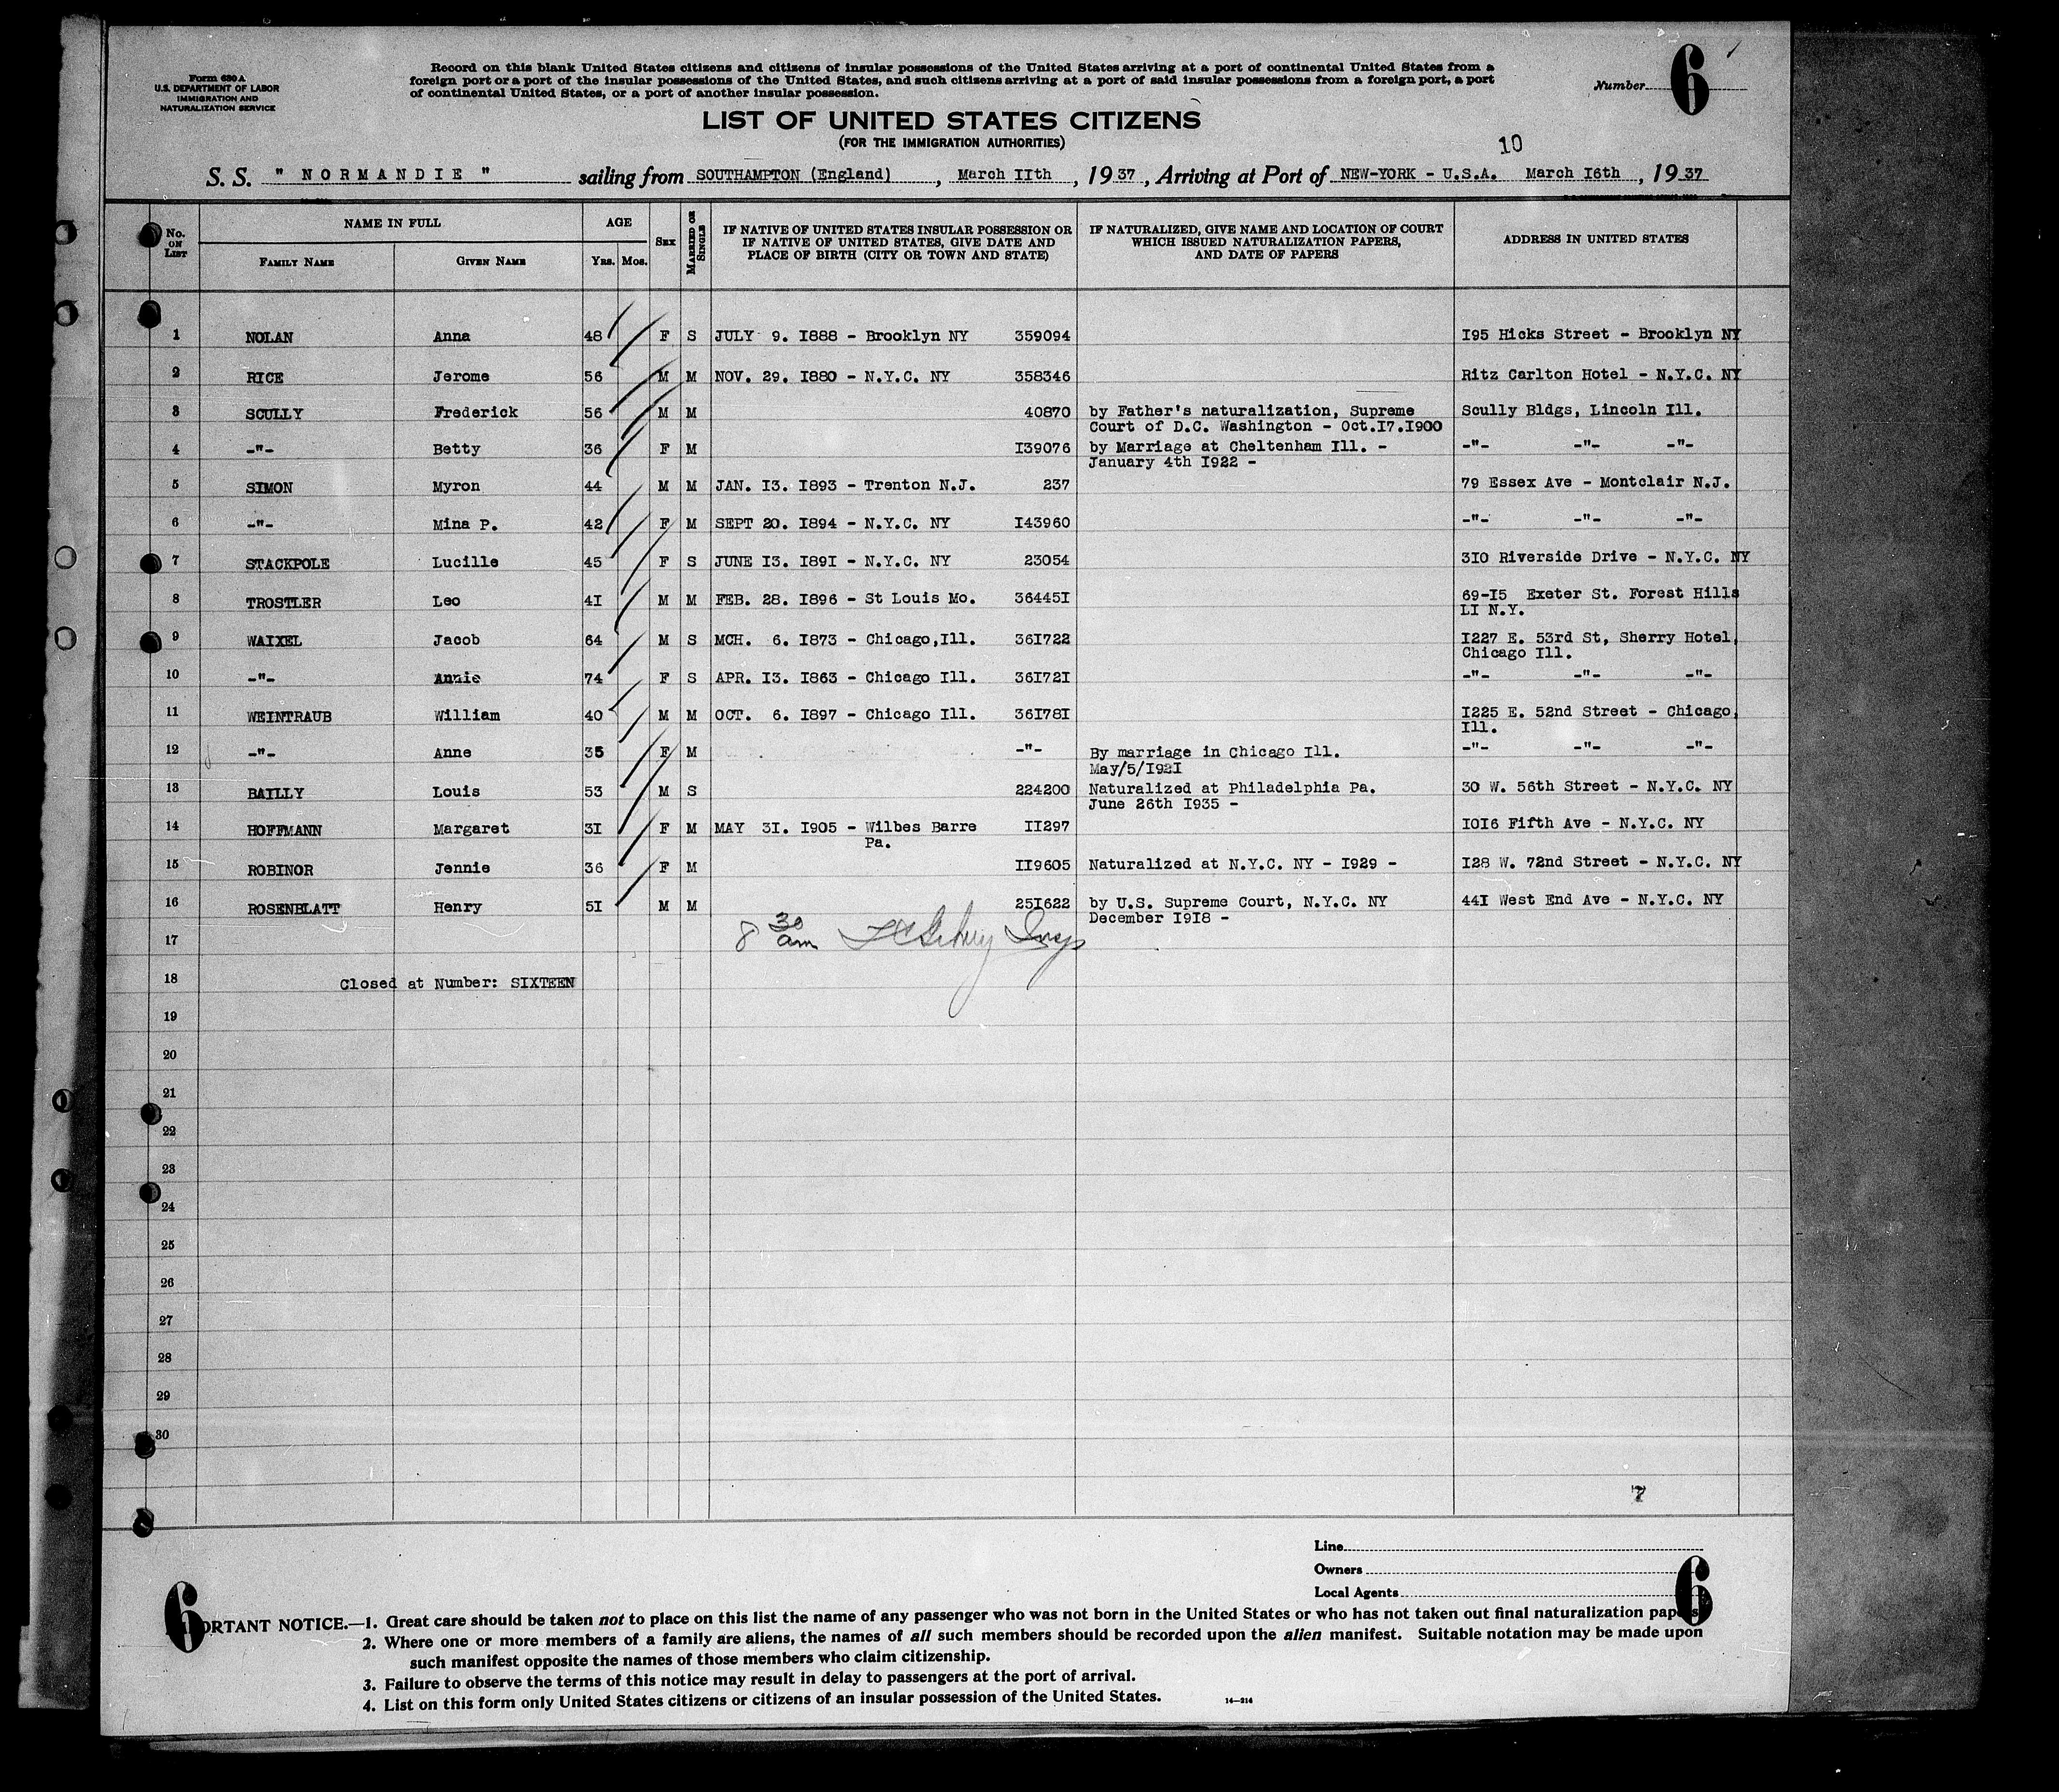 Form 630 A
U.S. DEPARTMENT OF LABOR
IMMIGRATION AND
NATURALIZATION SERVICE
Record on this blank United States citizens and citizens of insular possessions of the United States arriving at a port of continental United States from a
foreign port or a port of the insular possessions of the United States, and such citizens arriving at a port of said insular possessions from a foreign port, a port
of continental United States, or a port of another insular possession.
Number 6
LIST OF UNITED STATES CITIZENS
(FOR THE IMMIGRATION AUTHORITIES)
10
S. S. " NORMANDIE " sailing from SOUTHAMPTON (England), March IIth, 1937, Arriving at Port of NEW-YORK - U.S.A. March I6th, 1937
No. ON LIST
NAME IN FULL
FAMILY NAME
GIVEN NAME
AGE
YRS. MOS.
SEX
MARRIED OR SINGLE
IF NATIVE OF UNITED STATES INSULAR POSSESSION OR
IF NATIVE OF UNITED STATES, GIVE DATE AND
PLACE OF BIRTH (CITY OR TOWN AND STATE)
IF NATURALIZED, GIVE NAME AND LOCATION OF COURT
WHICH ISSUED NATURALIZATION PAPERS,
AND DATE OF PAPERS
ADDRESS IN UNITED STATES
1 NOLAN Anna 48 F S JULY 9. I888 - Brooklyn NY 359094 I95 Hicks Street - Brooklyn NY
2 RICE Jerome 56 M M NOV. 29. I880 - N.Y.C. NY 358346 Ritz Carlton Hotel - N.Y.C. NY
3 SCULLY Frederick 56 M M 40870 by Father's naturalization, Supreme Scully Bldgs, Lincoln Ill.
Court of D.C. Washington - Oct.I7.I900
4 -"- Betty 36 F M I39076 by Marriage at Cheltenham Ill. - -"- -"- -"-
January 4th I922 -
5 SIMON Myron 44 M M JAN. I3. I893 - Trenton N.J. 237 79 Essex Ave - Montclair N.J.
6 -"- Mina P. 42 F M SEPT 20. I894 - N.Y.C. NY I43960 -"- -"- -"-
7 STACKPOLE Lucille 45 F S JUNE I3. I89I - N.Y.C. NY 23054 3I0 Riverside Drive - N.Y.C. NY
8 TROSTLER Leo 4I M M FEB. 28. I896 - St Louis Mo. 36445I 69-I5 Exeter St. Forest Hills
LI N.Y.
9 WAIXEL Jacob 64 M S MCH. 6. I873 - Chicago,Ill. 36I722 I227 E. 53rd St, Sherry Hotel,
Chicago Ill.
10 -"- Annie 74 F S APR. I3. I863 - Chicago Ill. 36I72I -"- -"- -"-
11 WEINTRAUB William 40 M M OCT. 6. I897 - Chicago Ill. 36I78I I225 E. 52nd Street - Chicago,
Ill.
12 -"- Anne 35 F M -"- By marriage in Chicago Ill. -"- -"- -"-
May/5/I92I
13 BAILLY Louis 53 M S 224200 Naturalized at Philadelphia Pa. 30 W. 56th Street - N.Y.C. NY
June 26th I935 -
14 HOFFMANN Margaret 3I F M MAY 3I. I905 - Wilbes Barre II297 I0I6 Fifth Ave - N.Y.C. NY
Pa.
15 ROBINOR Jennie 36 F M II9605 Naturalized at N.Y.C. NY - I929 - I28 W. 72nd Street - N.Y.C. NY
16 ROSENBLATT Henry 5I M M 25I622 by U.S. Supreme Court, N.Y.C. NY 44I West End Ave - N.Y.C. NY
December I9I8 -
17 8 30 am
18 Closed at Number: SIXTEEN
19
20
21
22
23
24
25
26
27
28
29
30
7
Line
Owners
Local Agents
6
6
ORTANT NOTICE.—1. Great care should be taken not to place on this list the name of any passenger who was not born in the United States or who has not taken out final naturalization papers
2. Where one or more members of a family are aliens, the names of all such members should be recorded upon the alien manifest. Suitable notation may be made upon
such manifest opposite the names of those members who claim citizenship.
3. Failure to observe the terms of this notice may result in delay to passengers at the port of arrival.
4. List on this form only United States citizens or citizens of an insular possession of the United States.
14—214